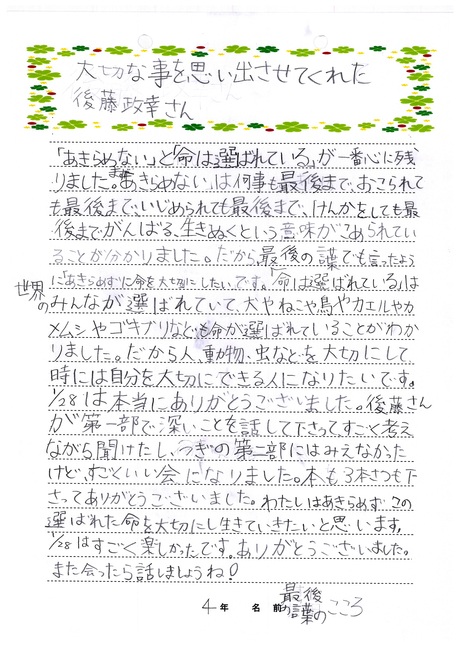 大切な事を思い出させてくれた
後藤政幸さん
「あきらめない」と「命は選ばれている」が一番心に残
りました。まず、あきらめない」は何事も最後まで、おこられて
も最後まで、いじめられても最後まで、けんかをしても最
後までがんばる、生きぬくという意味がこめられてい
ることが分かりました。だから、最後の言葉でも言ったよう
に「あきらめずに命を大切にしたいです。「命は選ばれている」は
世界のみんなが選ばれていて、犬やねこや鳥やカエルやカ
メムシやゴキブリなども命が選ばれていることがわか
りました。だから人、動物、虫などを大切にして
時には自分を大切にできる人になりたいです。
1/28は本当にありがとうございました。後藤さん
が第一部で深いことを話して下さってすごく考え
ながら聞けたし、つぎの第二部にはみえなかった
けど、すごくいい会になりました。本も3本さつも下
さってありがとうございました。わたしはあきらめずこの
選ばれた命を大切にし生きていきたいと思います。
1/28はすごく楽しかったです。ありがとうございました。
また会ったら話しましょうね!
4年 名前 最後の言葉のこころ